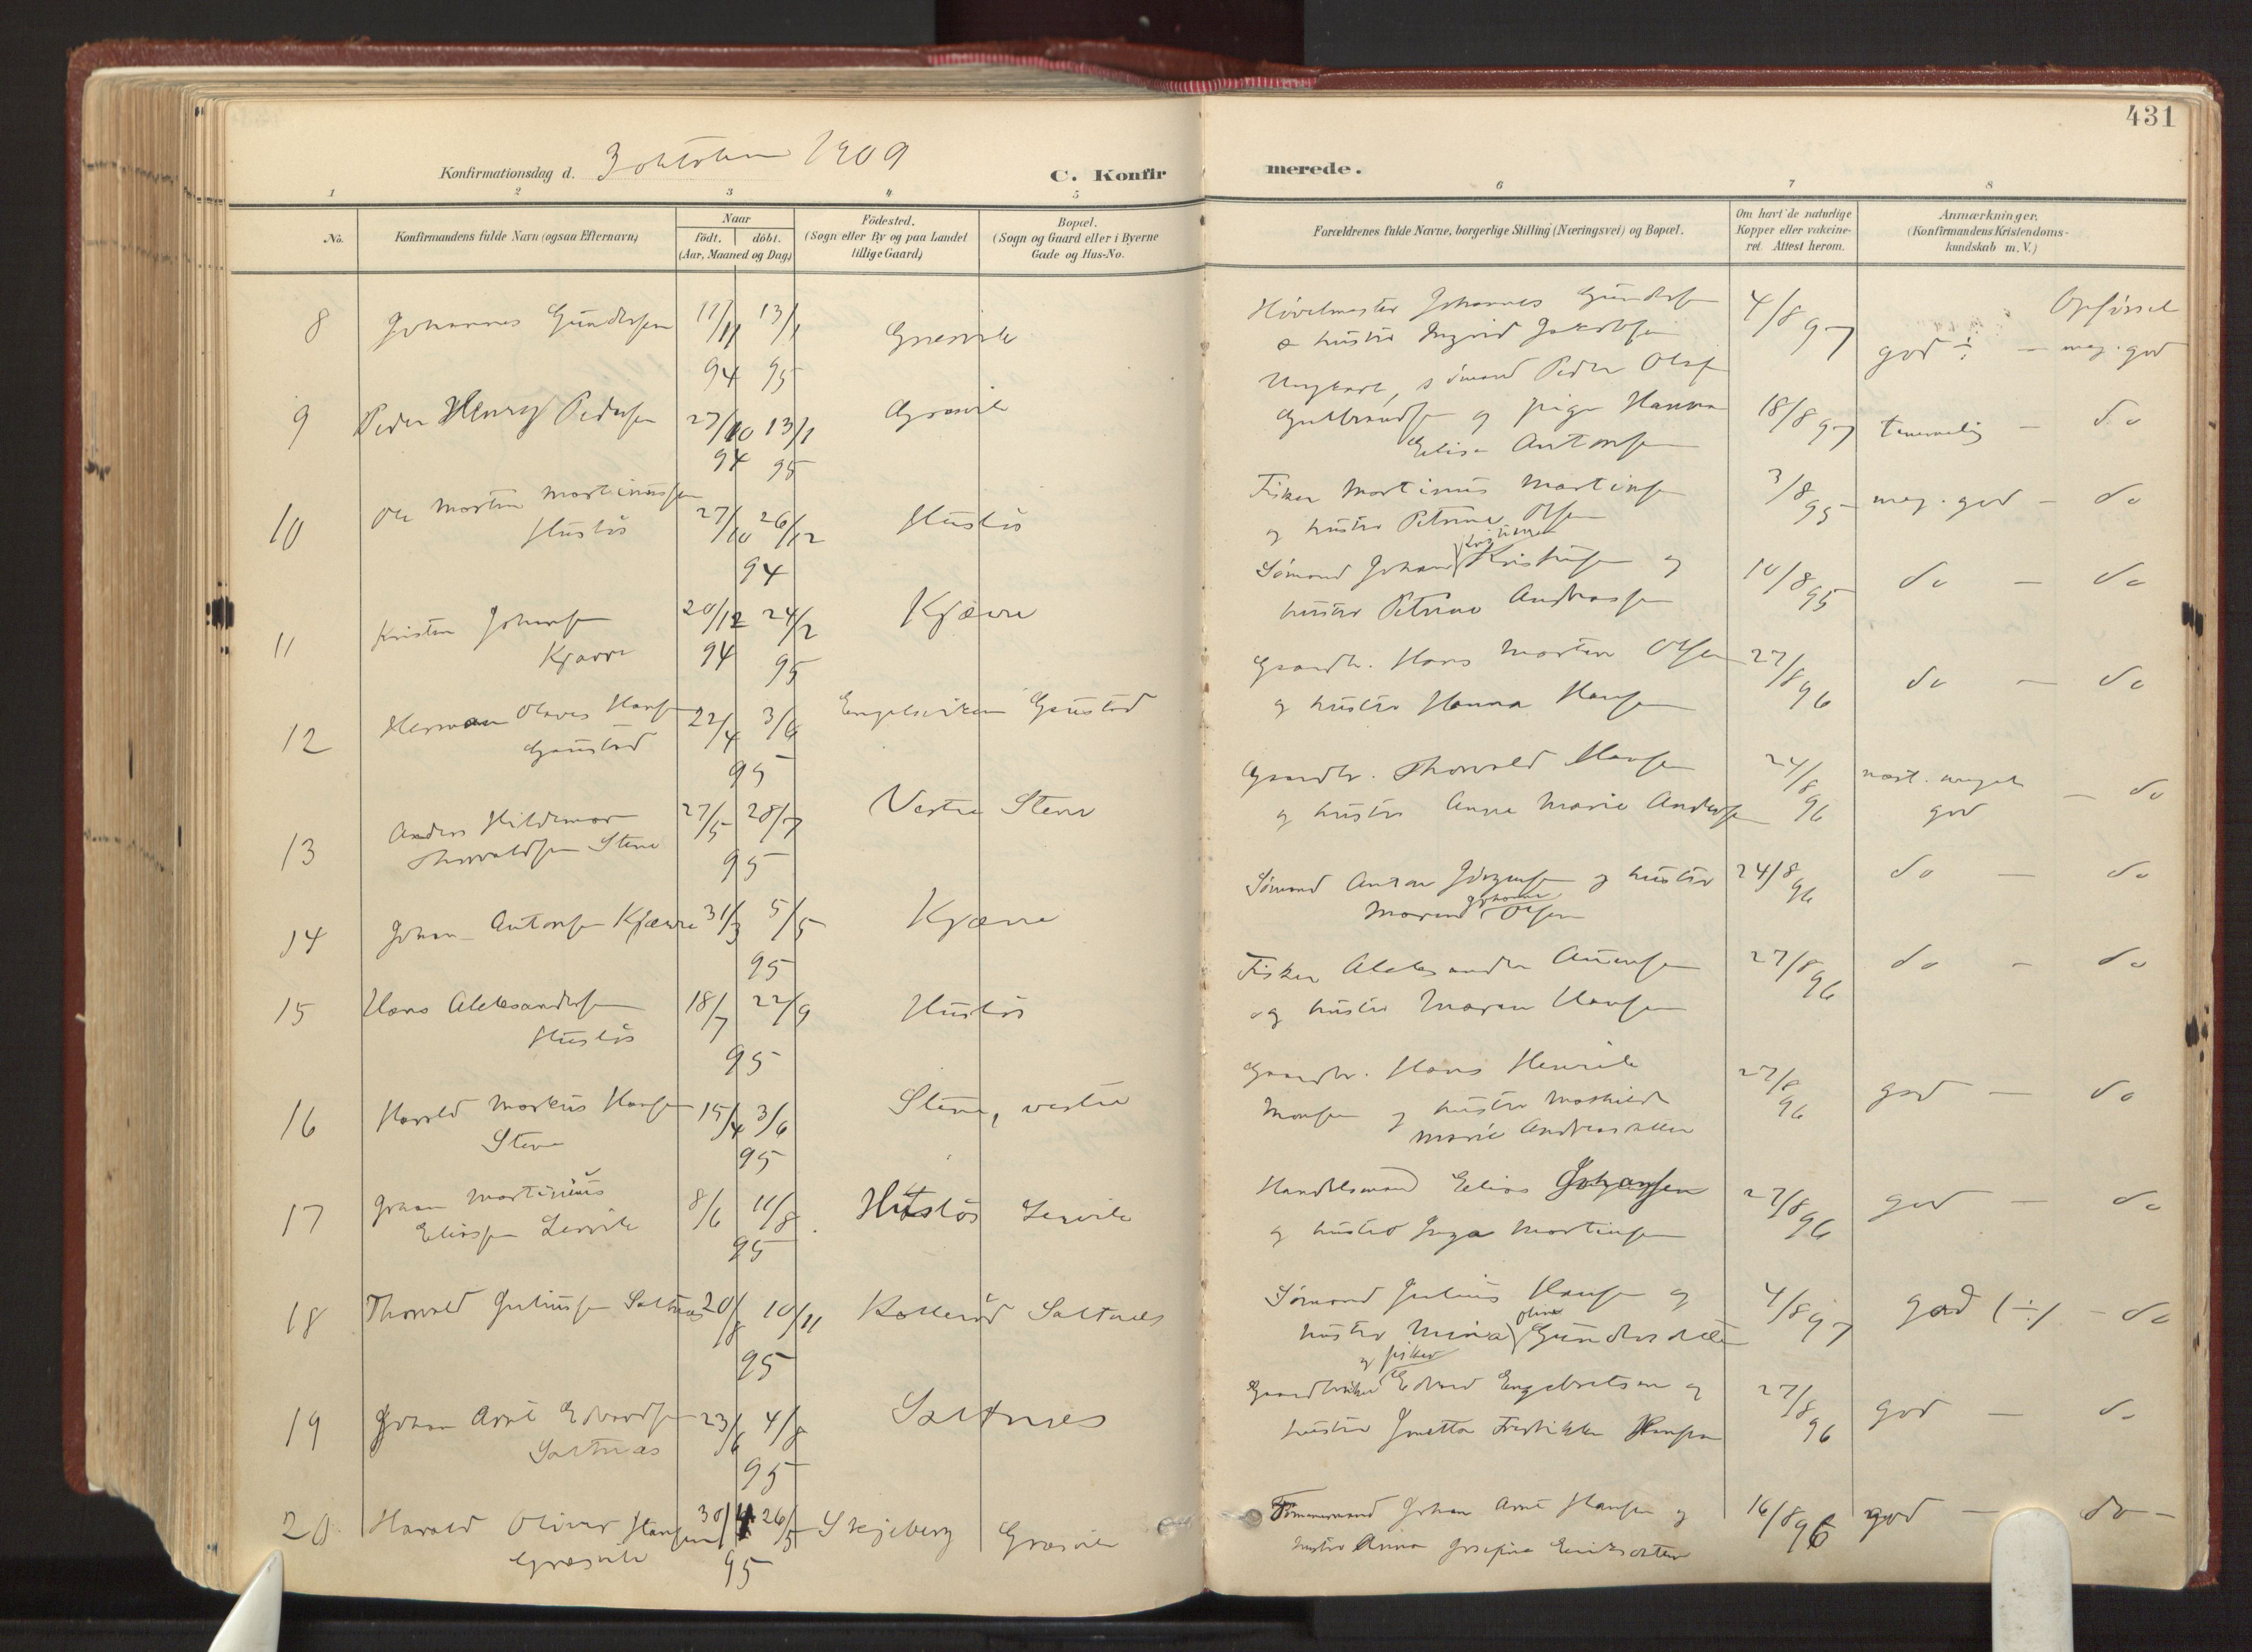 431
Konfirmationsdag d. 3 oktober 1909
C. Konfir merede.
1 2 3 4 5 6 7 8
No.
Konfirmandens fulde Navn (ogsaa Efternavn)
Naar
födt. döbt.
(Aar, Maaned og Dag)
Födested.
(Sogn eller By og paa Landet
tillige Gaard)
Bopæl.
(Sogn og Gaard eller i Byerne
Gade og Hus-No.
Forældrenes fulde Navne, borgerlige Stilling (Næringsvei) og Bopæl.
Om havt de naturlige
Kopper eller vakcine-
ret. Attest herom.
Anmærkninger.
(Konfirmandens Kristendoms-
kundskab m. V.)
8 Johannes Gundersen 11/11 94 13/1 95 Græsvik
Høvelmester Johannes Gundersen
& hustru Ingrid Jakobsen
4/8 97 god ÷ — meg. god
Opførsel
9 Peder Henry Pedersen 27/10 94 13/1 95 Græsvik
Ungkarl, sömand Peder Olaf
Gulbrandsen og pige Hanna
Elise Antonsen
18/8 97 temmelig — do
10 Ole Morten Martinussen
Huslös
27/10 26/12 94 Huslös
Fisker Martinus Martinsen
og hustru Petrine Olsen
3/8 95 meg. god — do
11 Kristen Johansen
Kjærre
20/12 94 24/2 95 Kjærre
Sömand Johan Kristiansen og
hustru Petrine Andreassen
10/8 95 do — do
12 Herman Olaves Hansen
Gaustad
22/4 3/6 95 Engelsviken Gaustad
Gaardbr. Hans Morten Olsen
og hustru Hanna Hansen
27/8 96 do — do
13 Anders Hildemar
Thorvaldsen Stene
27/5 28/7 95 Vestre Stene
Gaardbr. Thorvald Hansen
og hustru Anne Marie Andersen
24/8 96 næst. meget
god — do
14 Johan Antonsen Kjærre 31/3 5/5 95 Kjærre
Sömand Anton Jörgensen og hustru
Maren Johanne Olsen
24/8 96 do — do
15 Hans Aleksandersen
Huslös
18/7 22/9 95 Huslös
Fisker Aleksander
og hustru Maren Hansen
27/8 96 do — do
16 Harald Markus Hansen
Stene
15/4 3/6 95 Stene, vestre
Gaardbr. Hans Henrik
Monsen og hustru Mathilde
Marie Andreasdatter
27/8 96 god — do
17 Johan Martinius
Eliassen Lervik
8/6 11/8 95 Huslös Lervik
Handelsmand Elias Johansen
og hustru Inga Martinsen
27/8 96 god — do
18 Thorvald Juliussen Saltnæs 20/8 10/11 95 Kolleröd Saltnæs
Sömand Julius Hansen og
hustru Mina Oline Gundersdatter
4/8 97 god (÷) — do
19 Johan Arnt Edvardsen
Saltnæs
23/6 4/8 95 Saltnæs
Gaardbruker og fisker Edvard Engebretsen og
hustru Jonetta Fredrikke Hansen
27/8 96 god — do
20 Harald Oliver Hansen
Græsvik
30/4 26/5 95 Skjeberg Græsvik
Tömmermand Johan Arnt Hansen og
hustru Anna Josefine Eriksdatter
16/8 96 god — do —